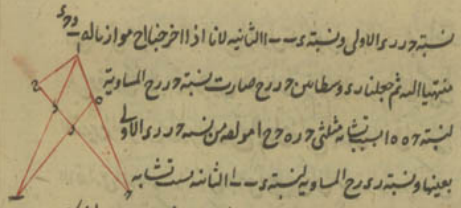 نسبة حر رى الاولى ونسبة ى ب ب ا الثانيه لانا اذا اخرجنا اح موازيا له
منتهيا اليه ثم جعلنا رى وسطا بين حر رح صارت نسبة حر رح المساوية
لنسبة حه ه ا بسبب تشابه مثلثى حره ح ا مولفه من نسبة حر رى الاولى
بعينها ونسبة رى رح المساويه لنسبة ى ب ب ا الثانيه بسبب تشابه